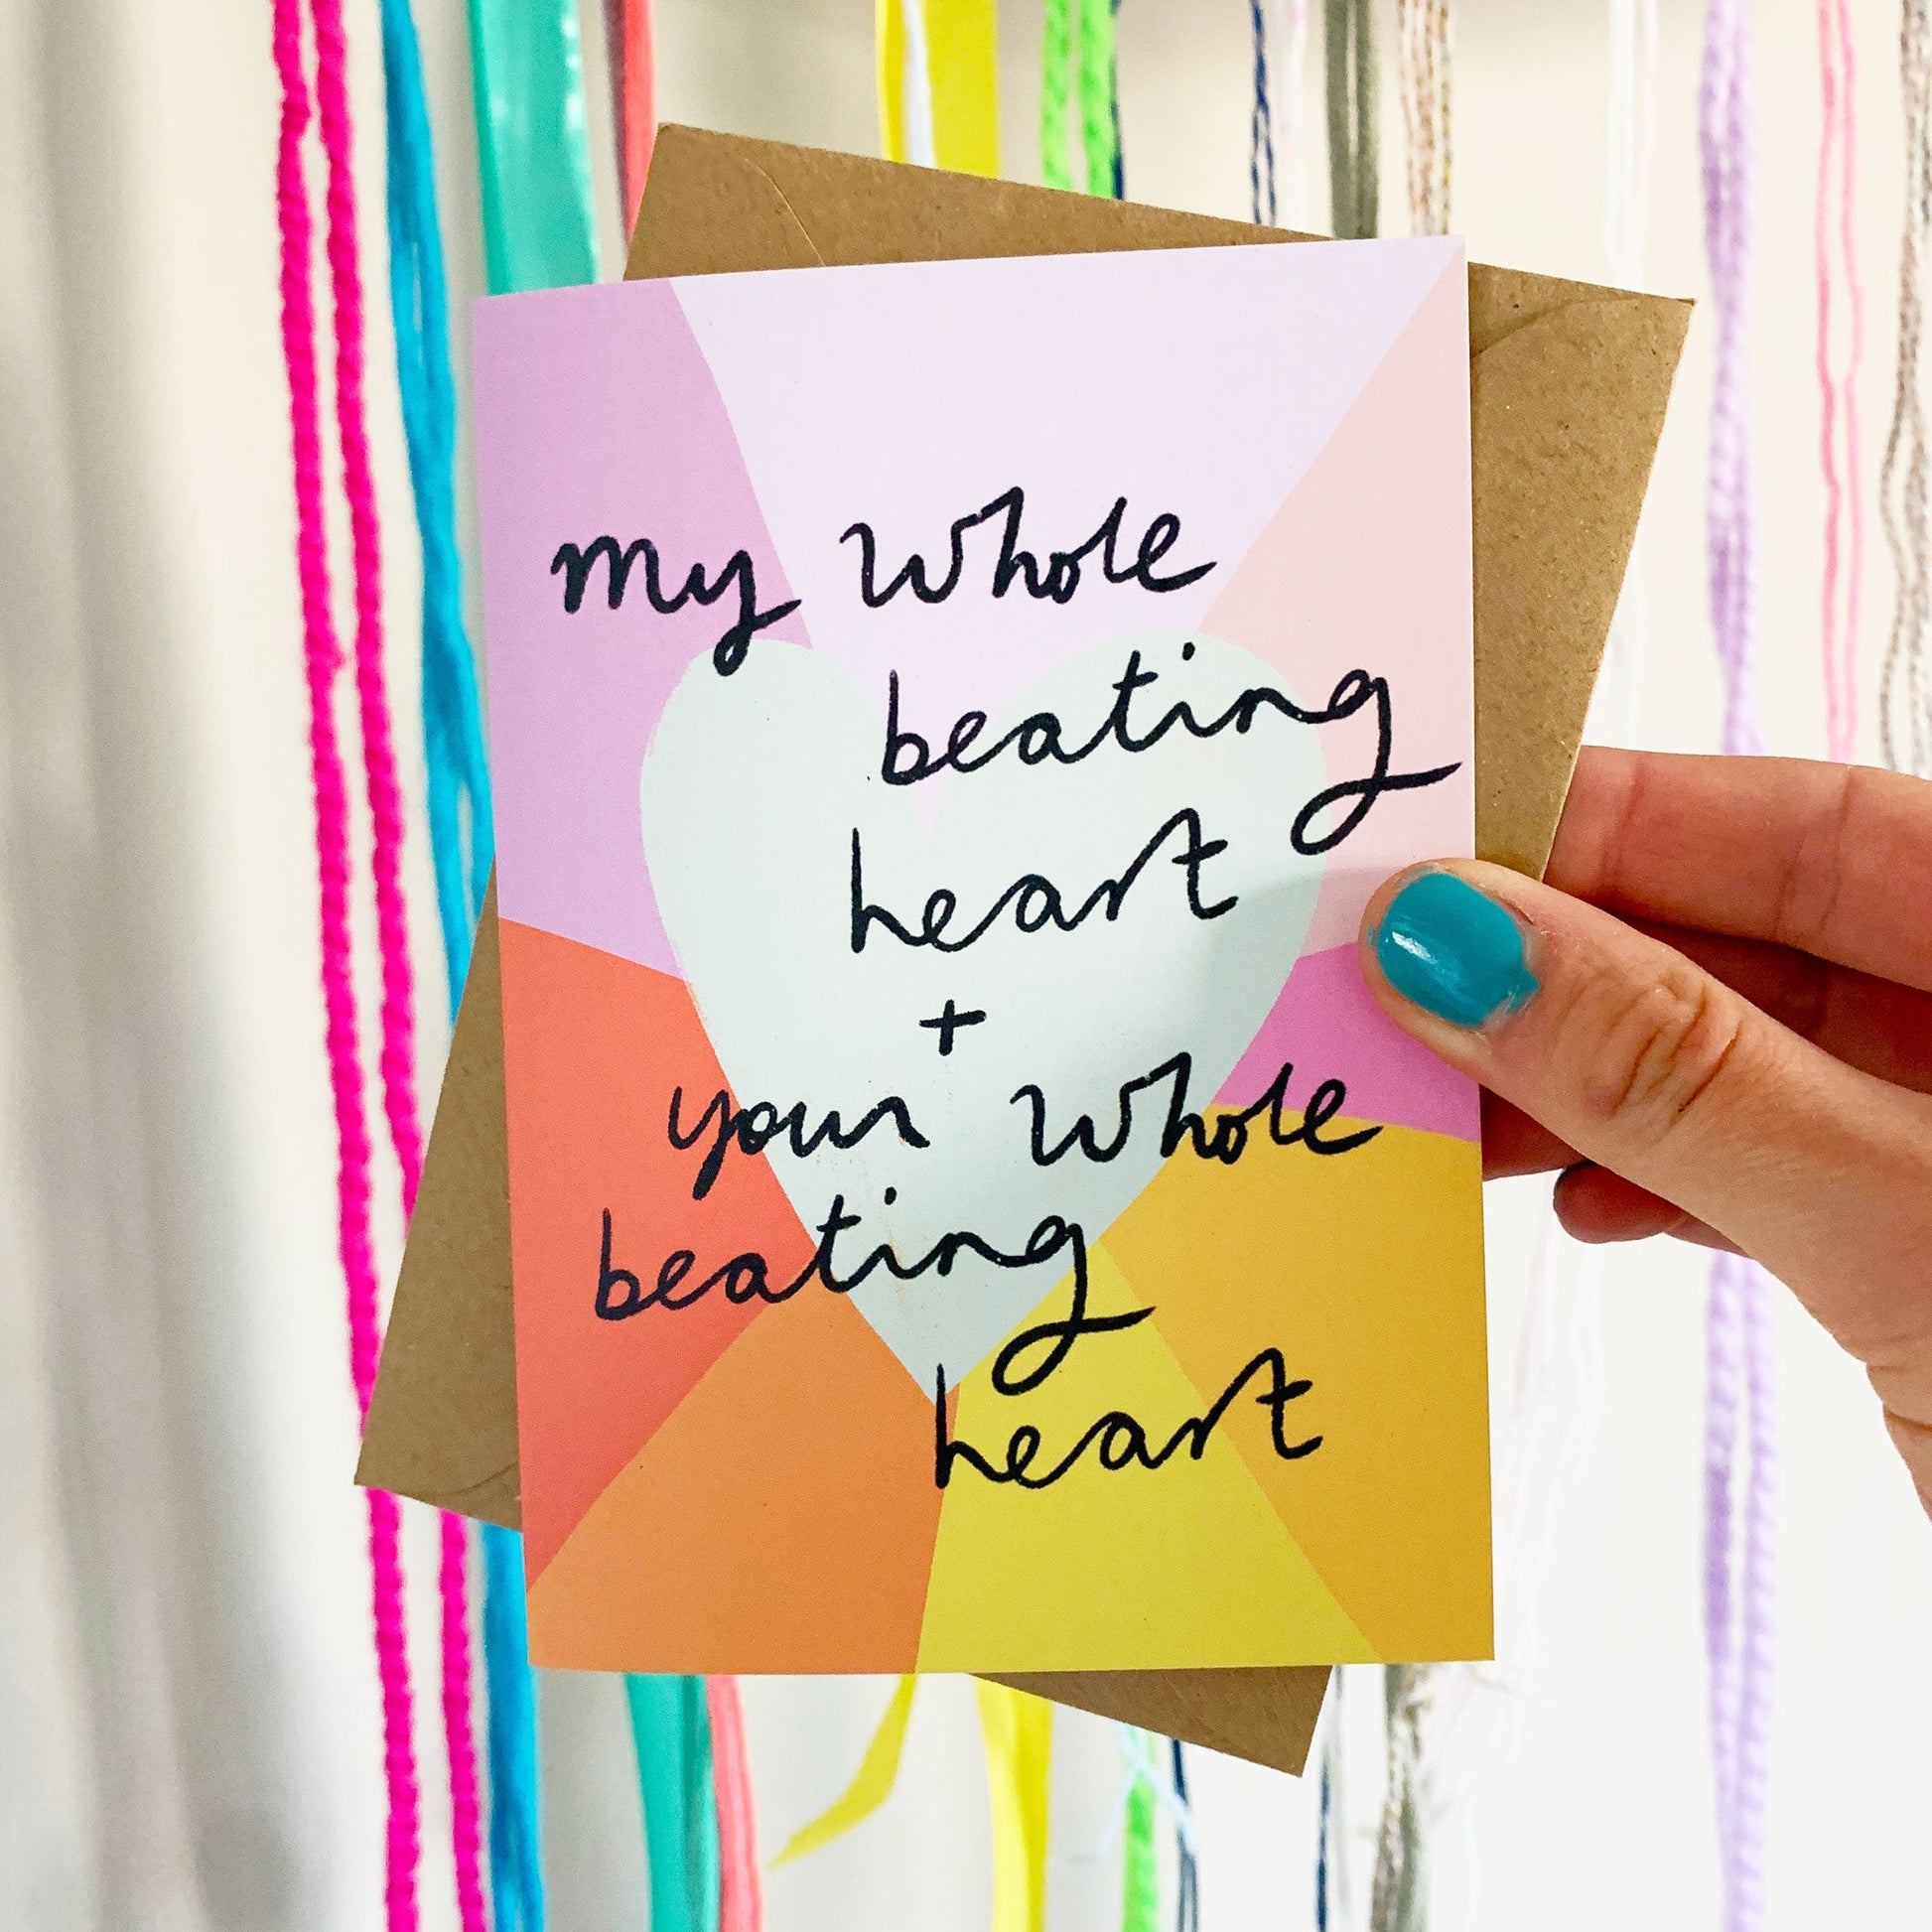 my whole
beating
heart
+
your whole
beating
heart